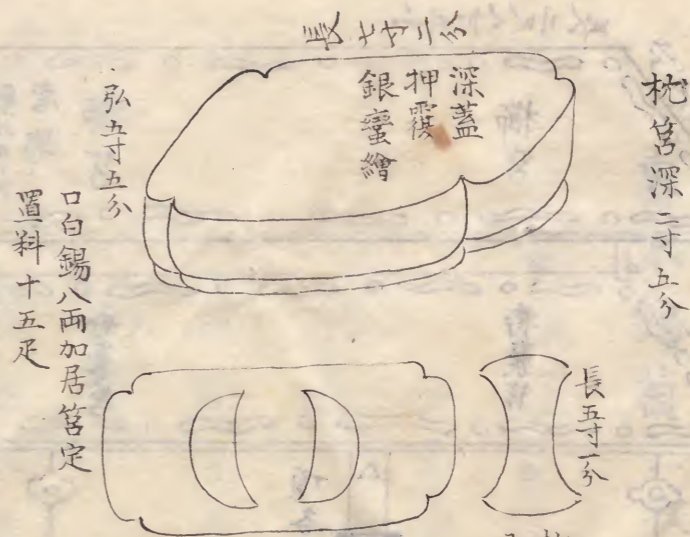 枕筥深二寸五分
長七寸二分
深蓋
押覆
銀蛮繪
弘五寸五分
口白鑞八両加居筥定
置料十五疋
長五寸一分